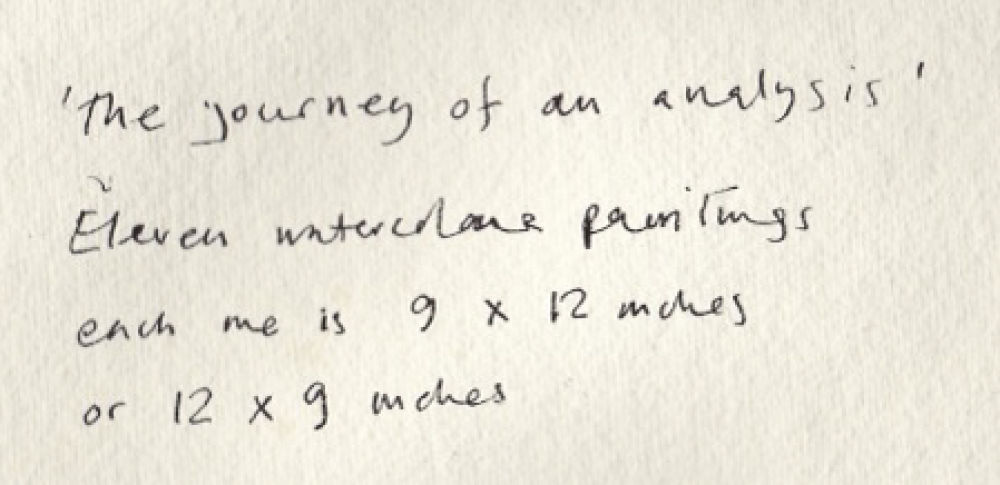 'The journey of an analysis'
Eleven watercolour paintings
each one is 9 x 12 inches
or 12 x 9 inches